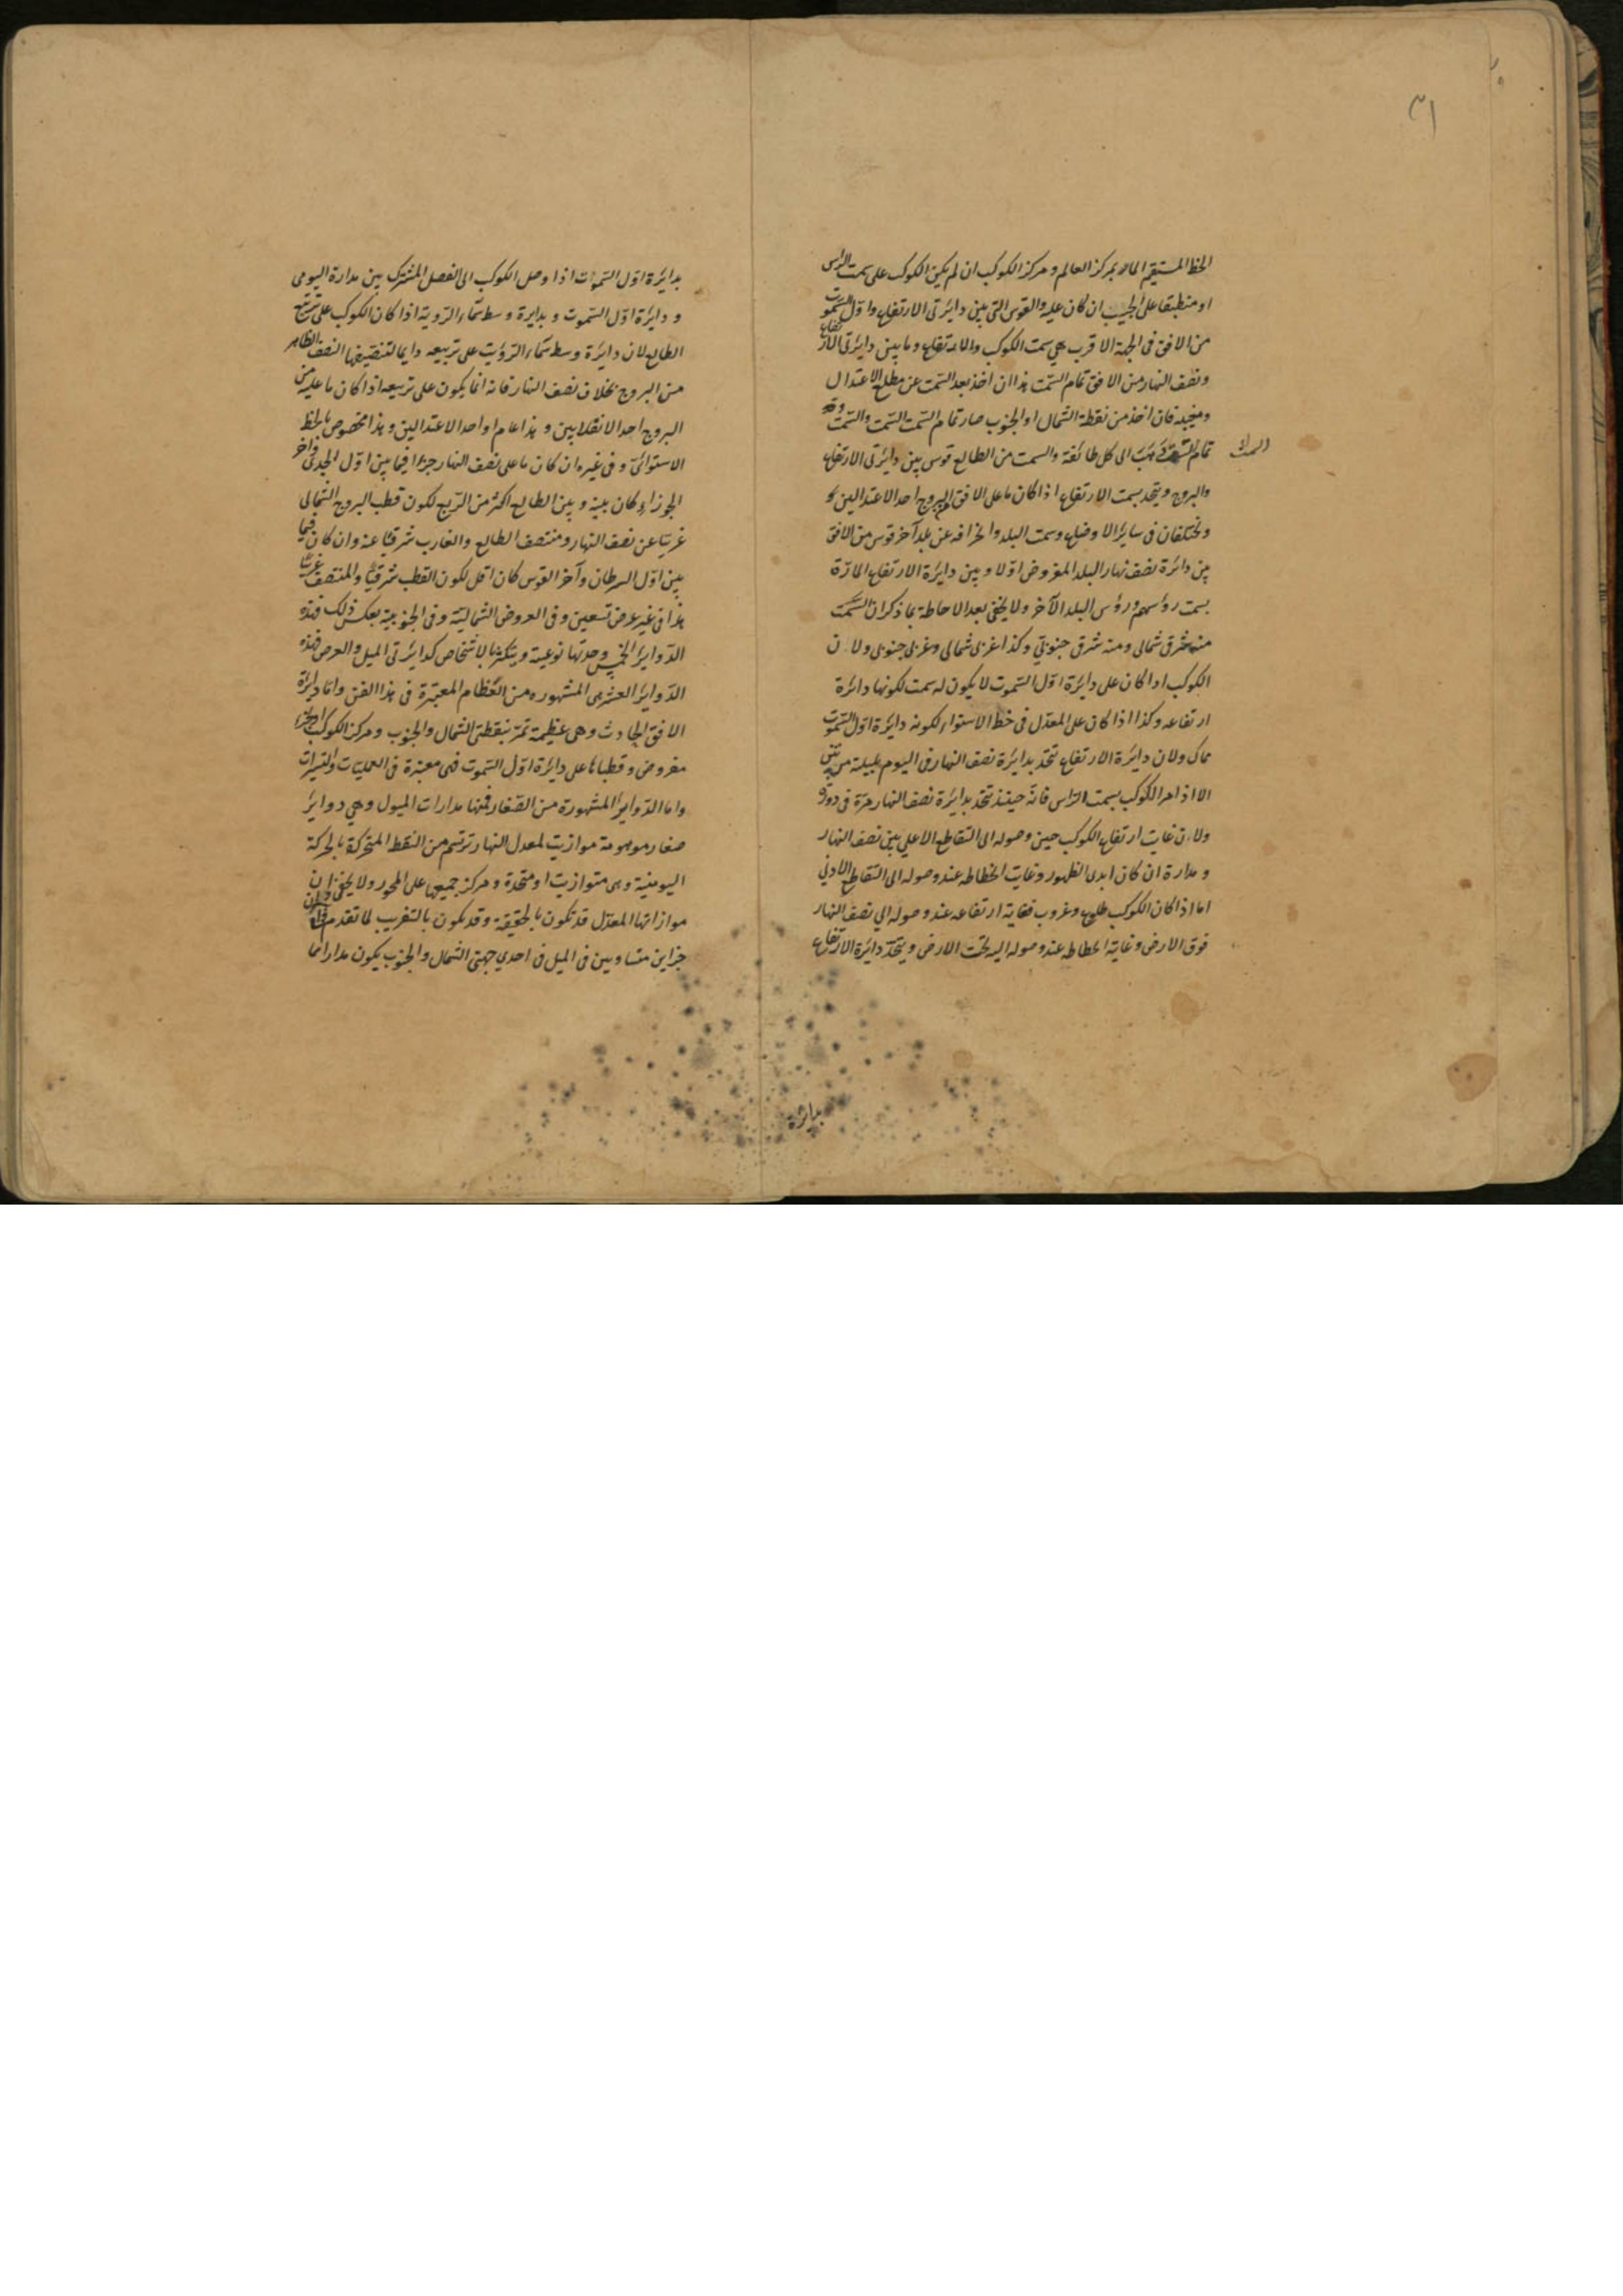 ٣١
الخط المستقيم المار بمركز العالم ومركز الكوكب ان لم يكن الكوكب على سمت الراس
او منطبقا على الجيب ان كان عليه والقوس التى بين دايرتى الارتفاع واول السموت
من الافق فى الجهة الاقرب هي سمت الكوكب والارتفاع وما بين دايرتى الارتفاع
ونصف النهار من الافق تمام السمت هذا ان اخذ بعد السمت عن مطلع الاعتدال
ومغيبه فان اخذ من نقطة الشمال او الجنوب صار تمام السمت السمت والسمت
تمام السمت الى كل طائفة والسمت من الطالع قوس بين دايرتى الارتفاع
والبروج ويتحد بسمت الارتفاع اذا كان ما على الافق من البروج احد الاعتدالين
ويختلفان فى ساير الاوضاع وسمت البلد وانحرافه عن بلد آخر قوس من الافق
بين دائرة نصف نهار البلد المفروض اولا وبين دايرة الارتفاع المارة
بسمت رؤسهم ورؤس البلد الآخر ولا يخفى بعد الاحاطة بما ذكر ان السمت
منه شرقى شمالى ومنه شرقى جنوبي وكذا غربى شمالى وغربى جنوبى ولان
الكوكب اذا كان على دايرة اول السموت لا يكون له سمت لكونها دائرة
ارتفاعه وكذا اذا كان على المعدل فى خط الاستواء لكونه دايرة اول السموت
هناك ولان دايرة الارتفاع تتحد بدايرة نصف النهار فى اليوم بليلته مرتين
الا اذا مر الكوكب بسمت الراس فانه حينئذ تتحد بدايرة نصف النهار مرة فى دورة
ولان غاية ارتفاع الكوكب حين وصوله الى التقاطع الاعلى بين نصف النهار
ومداره ان كان ابدى الظهور وغاية انحطاطه عند وصوله الى التقاطع الادنى
اما اذا كان الكوكب طلوع وغروب فغاية ارتفاعه عند وصوله الي نصف النهار
فوق الارض وغاية انحطاطه عند وصوله اليه تحت الارض ويتحد دائرة الارتفاع
بدائرة
بدايرة اول السموت اذا وصل الكوكب الى الفصل المشترك بين مداره اليومى
ودايرة اول السموت وبدايرة وسط سماء الروية اذا كان الكوكب على تربيع
الطالع لان دايرة وسط سماء الرؤيت على تربيعه دايما لتنصيفها النصف الظاهر
من البروج بخلاف نصف النهار فانه انما يكون على تربيعه اذا كان ما عليه من
البروج احد الانقلابين وهذا عام او احد الاعتدالين وهذا مخصوص بالخط
الاستوائى وفى غيره ان كان ما على نصف النهار جزءا فيما بين اول الجدى وآخر
الجوزاء كان بينه وبين الطالع اكثر من الربع لكون قطب البروج الشمالى
غربيا عن نصف النهار ومنتصف الطالع والغارب شرقيا عنه وان كان فيما
بين اول السرطان وآخر القوس كان اقل لكون القطب شرقيا والمنتصف غربيا
هذا فى غير عرض تسعين وفى العروض الشمالية وفى الجنوبية بعكس ذلك فهذه
الدواير الخمس وحدتها نوعية ويتكثر بالاشخاص كدايرتى الميل والعرض فهذه
الدواير العشر هى المشهوره من العظام المعتبرة فى هذا الفن واما دايرة
الافق الحادث وهى عظيمة تمر بنقطتى الشمال والجنوب ومركز الكوكب او جزء
مفروض وقطباها على دايرة اول السموت فهى معتبرة فى العمليات والتسيرات
واما الدواير المشهورة من الصغار فمنها مدارات الميول وهي دواير
صغار موهومة موازية لمعدل النهار ترتسم من النقط المتحركة بالحركة
اليومية وهى متوازية او متحدة ومركز جميعها على المحور ولا يخفى ان
موازاتها المعدل قد تكون بالحقيقة وقد تكون بالتقريب لما تقدم وان
جزاين متساويين فى الميل فى احدي جهتى الشمال والجنوب يكون مداراهما